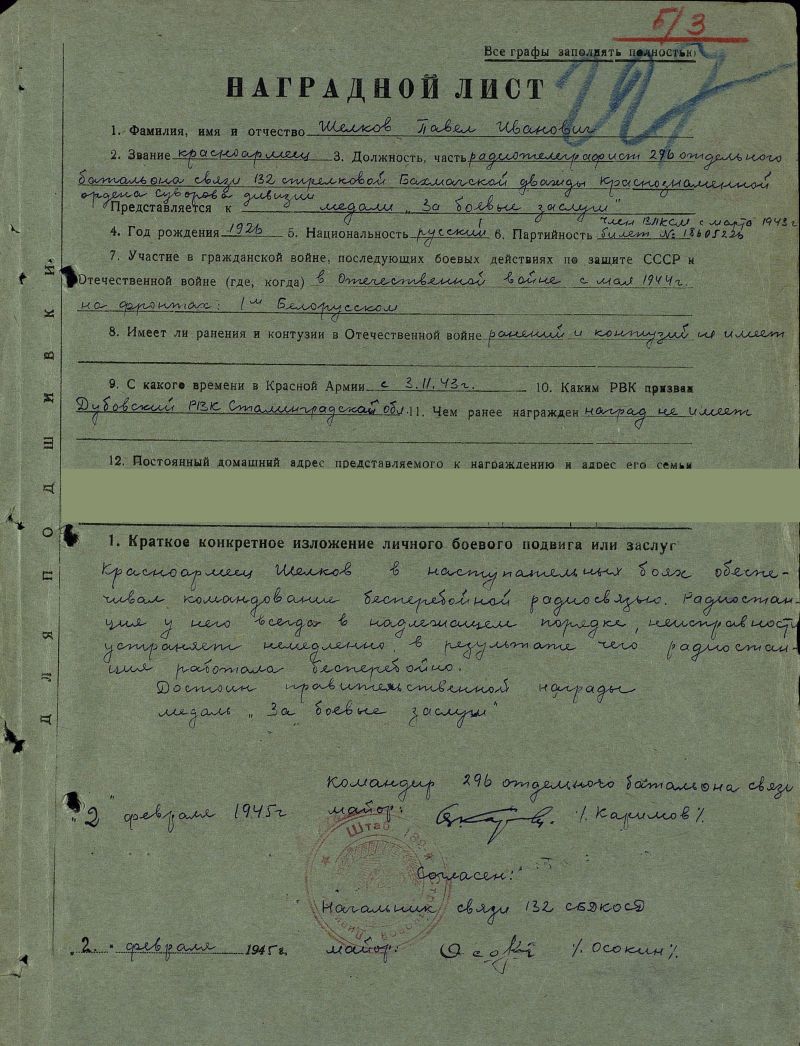 5/3
Все графы заполнять полностью
197
НАГРАДНОЙ ЛИСТ
1. Фамилия, имя и отчество Шелков Павел Иванович
2. Звание красноармеец 3. Должность, часть радиотелеграфист 296 отдельного
батальона связи 132 стрелковой Бахмачской дважды Краснознаменной
ордена Суворова дивизии
Представляется к медали „За боевые заслуги"
член ВЛКСМ с марта 1943 г
4. Год рождения 1926 5. Национальность русский 6. Партийность билет № 18605226
7. Участие в гражданской войне, последующих боевых действиях по защите СССР и
Отечественной войне (где, когда) в Отечественной войне с мая 1944 г.
на фронтах: 1м Белорусском
8. Имеет ли ранения и контузии в Отечественной войне ранений и контузий не имеет
9. С какого времени в Красной Армии с 3.11.43 г. 10. Каким РВК призван
Дубовский РВК Сталинградской обл. 11. Чем ранее награжден наград не имеет
12. Постоянный домашний адрес представляемого к награждению и адрес его семьи
1. Краткое конкретное изложение личного боевого подвига или заслуг
Красноармеец Шелков в наступательных боях обеспе-
чивал командование бесперебойной радиосвязью. Радиостан-
ция у него всегда в надлежащем порядке, неисправности
устраняет немедленно, в результате чего радиостан-
ция работала бесперебойно.
Достоин правительственной награды
медаль „За боевые заслуги"
Командир 296 отдельного батальона связи
„2" февраля 1945 г майор: /Каримов/
Штаб
Согласен:
Начальник связи 132 СБДКОСД
„2." февраля 1945 г. майор: /Осокин/
ДЛЯ ПОДШИВКИ